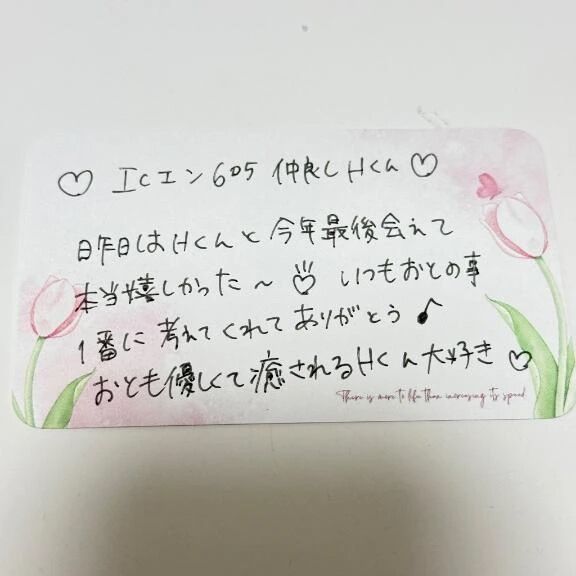 ♡ ICエン605 仲良しHくん ♡
昨日はHくんと今年最後会えて
本当嬉しかった〜♡ いつもおとの事
1番に考えてくれてありがとう♪
おとも優しくて癒されるHくん大好き♡
There is more to life than increasing its speed